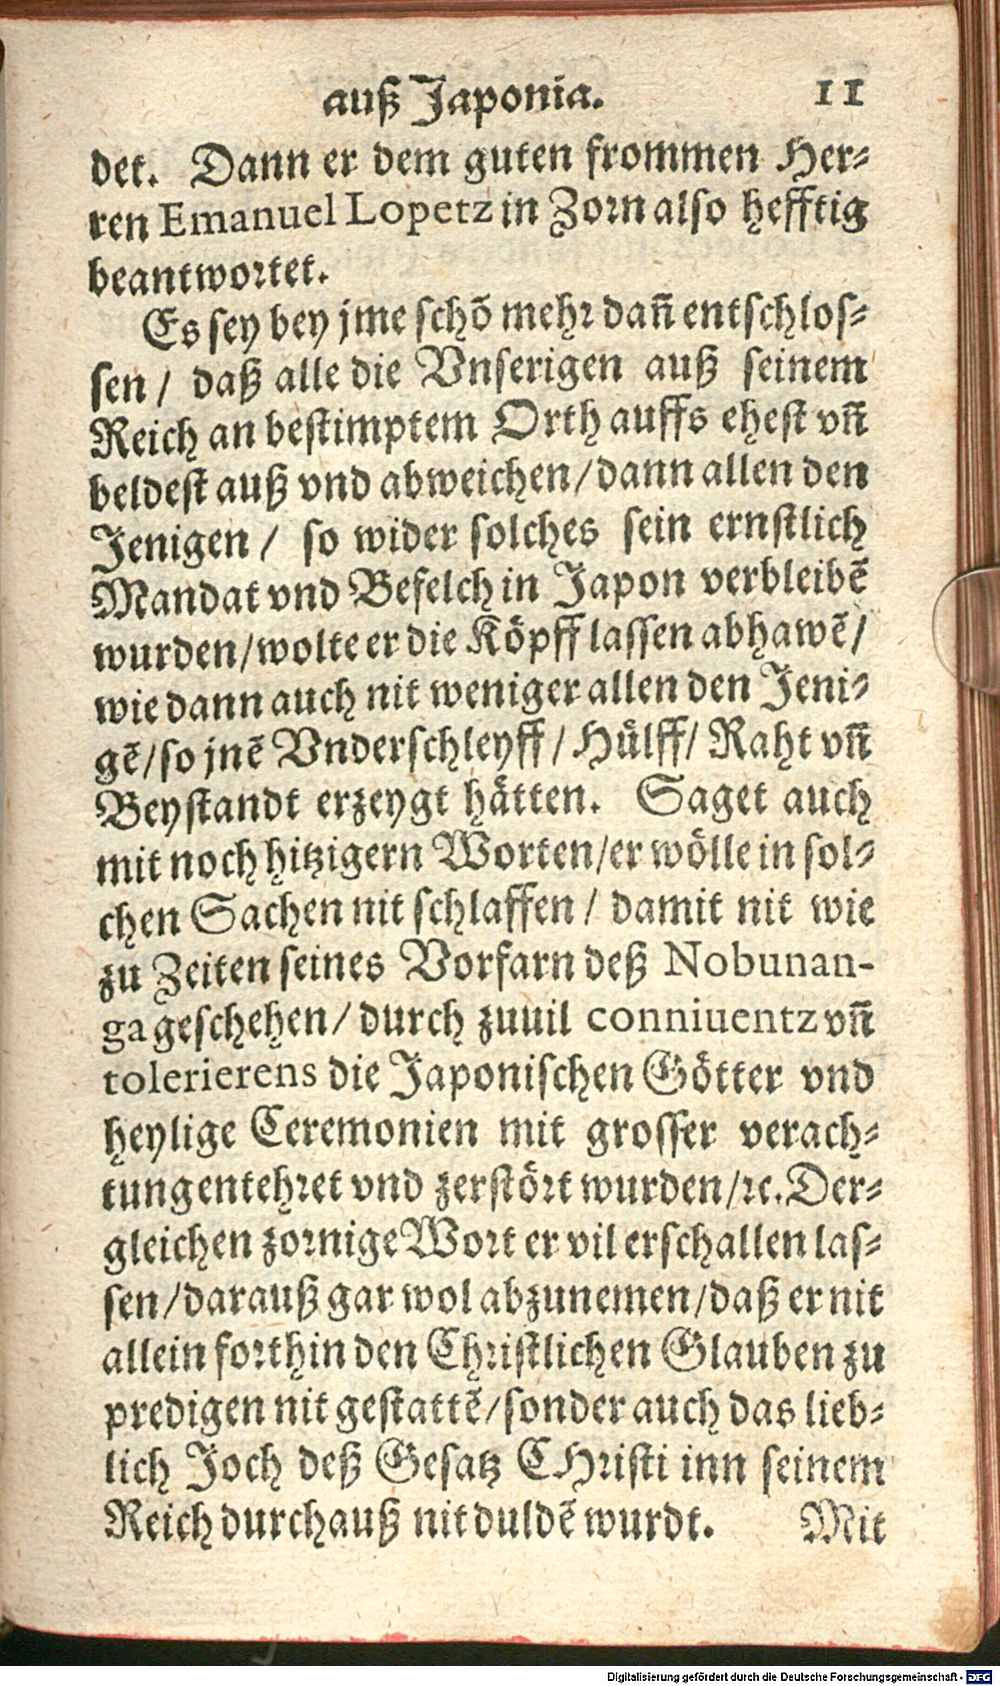 auß Japonia. 11
det. Dann er dem guten frommen Her-
ren Emanuel Lopetz in Zorn also hefftig
beantwortet.
Es sey bey jme schõ mehr dañ entschlos-
sen / daß alle die Vnserigen auß seinem
Reich an bestimptem Orth auffs ehest vñ
beldest auß vnd abweichen / dann allen den
Jenigen / so wider solches sein ernstlich
Mandat vnd Befelch in Japon verbleibẽ
wurden / wolte er die Köpff lassen abhawẽ /
wie dann auch nit weniger allen den Jeni-
gẽ / so jnẽ Vnderschleyff / Hülff / Raht vñ
Beystandt erzeygt hätten. Saget auch
mit noch hitzigern Worten / er wölle in sol-
chen Sachen nit schlaffen / damit nit wie
zu Zeiten seines Vorfarn deß Nobunan-
ga geschehen / durch zuuil conniuentz vñ
tolerierens die Japonischen Götter vnd
heylige Ceremonien mit grosser verach-
tung entehret vnd zerstört wurden / ꝛc. Der-
gleichen zornige Wort er vil erschallen las-
sen / darauß gar wol abzunemen / daß er nit
allein forthin den Christlichen Glauben zu
predigen nit gestattẽ / sonder auch das lieb-
lich Joch deß Gesatz CHristi inn seinem
Reich durchauß nit duldẽ wurdt. Mit
Digitalisierung gefördert durch die Deutsche Forschungsgemeinschaft - DFG